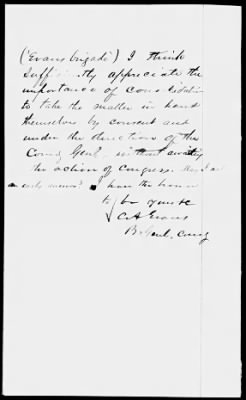 (Evans brigade) I think
appreciate the
importance of consolidation
to take the matter in hand
themselves by consent and
under the direction of the
Comg Genl. without awaiting
the action of Congress. May I ask
an early answer? I have the honor
to be yours &c
C A Evans
B. Genl. Comg